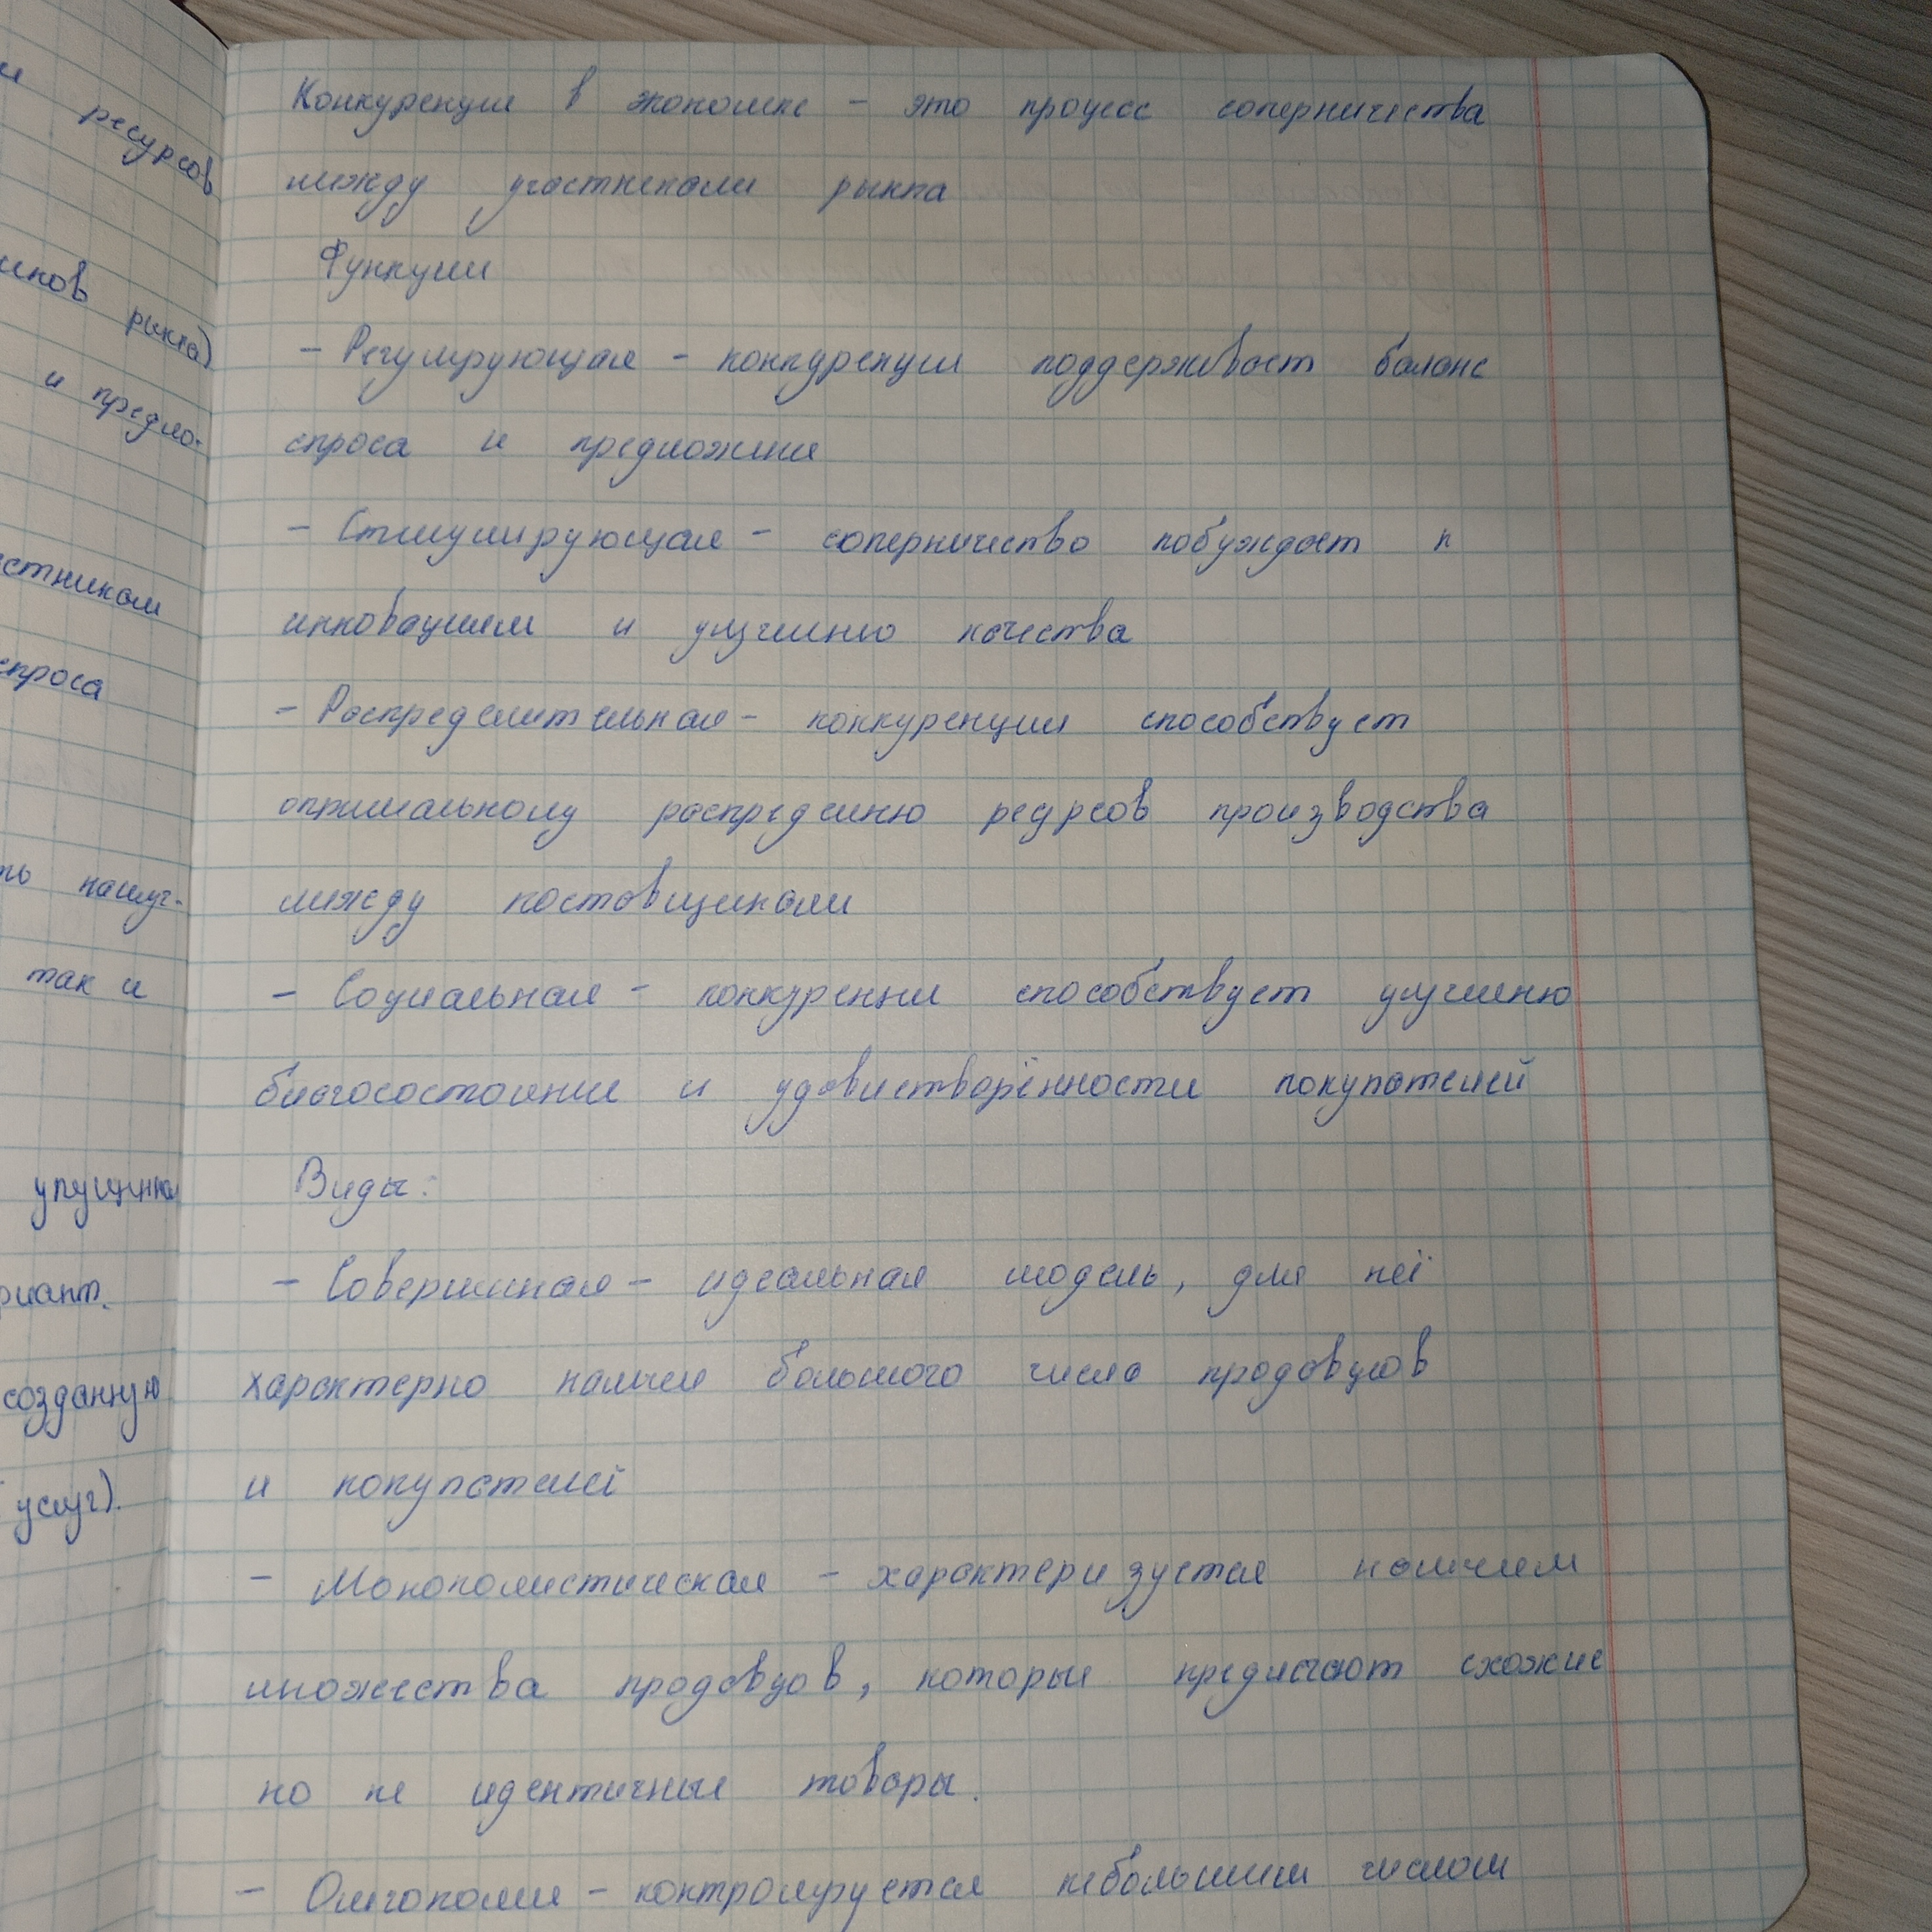 и ресурсов
иков рынка)
и предло-
стникам
спроса
ть наилуч-
так и
упущенная
риант.
созданную
услуг).
Конкуренция в экономике – это процесс соперничества
между участниками рынка
Функции
– Регулирующая – конкуренция поддерживает баланс
спроса и предложения
– Стимулирующая – соперничество побуждает к
инновациям и улучшению качества
– Распределительная – конкуренция способствует
оптимальному распределению ресурсов производства
между поставщиками
– Социальная – конкуренция способствует улучшению
благосостояния и удовлетворённости покупателей
Виды:
– Совершенная – идеальная модель, для неё
характерно наличие большого числа продавцов
и покупателей
– Монополистическая – характеризуется наличием
множества продавцов, которые предлагают схожие
но не идентичные товары.
– Олигополия – контролируется небольшим числом